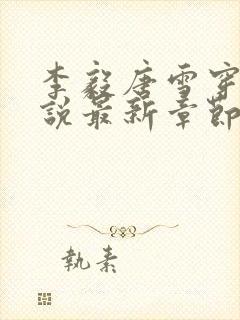 李毅唐雪穿
说最新章節
執素